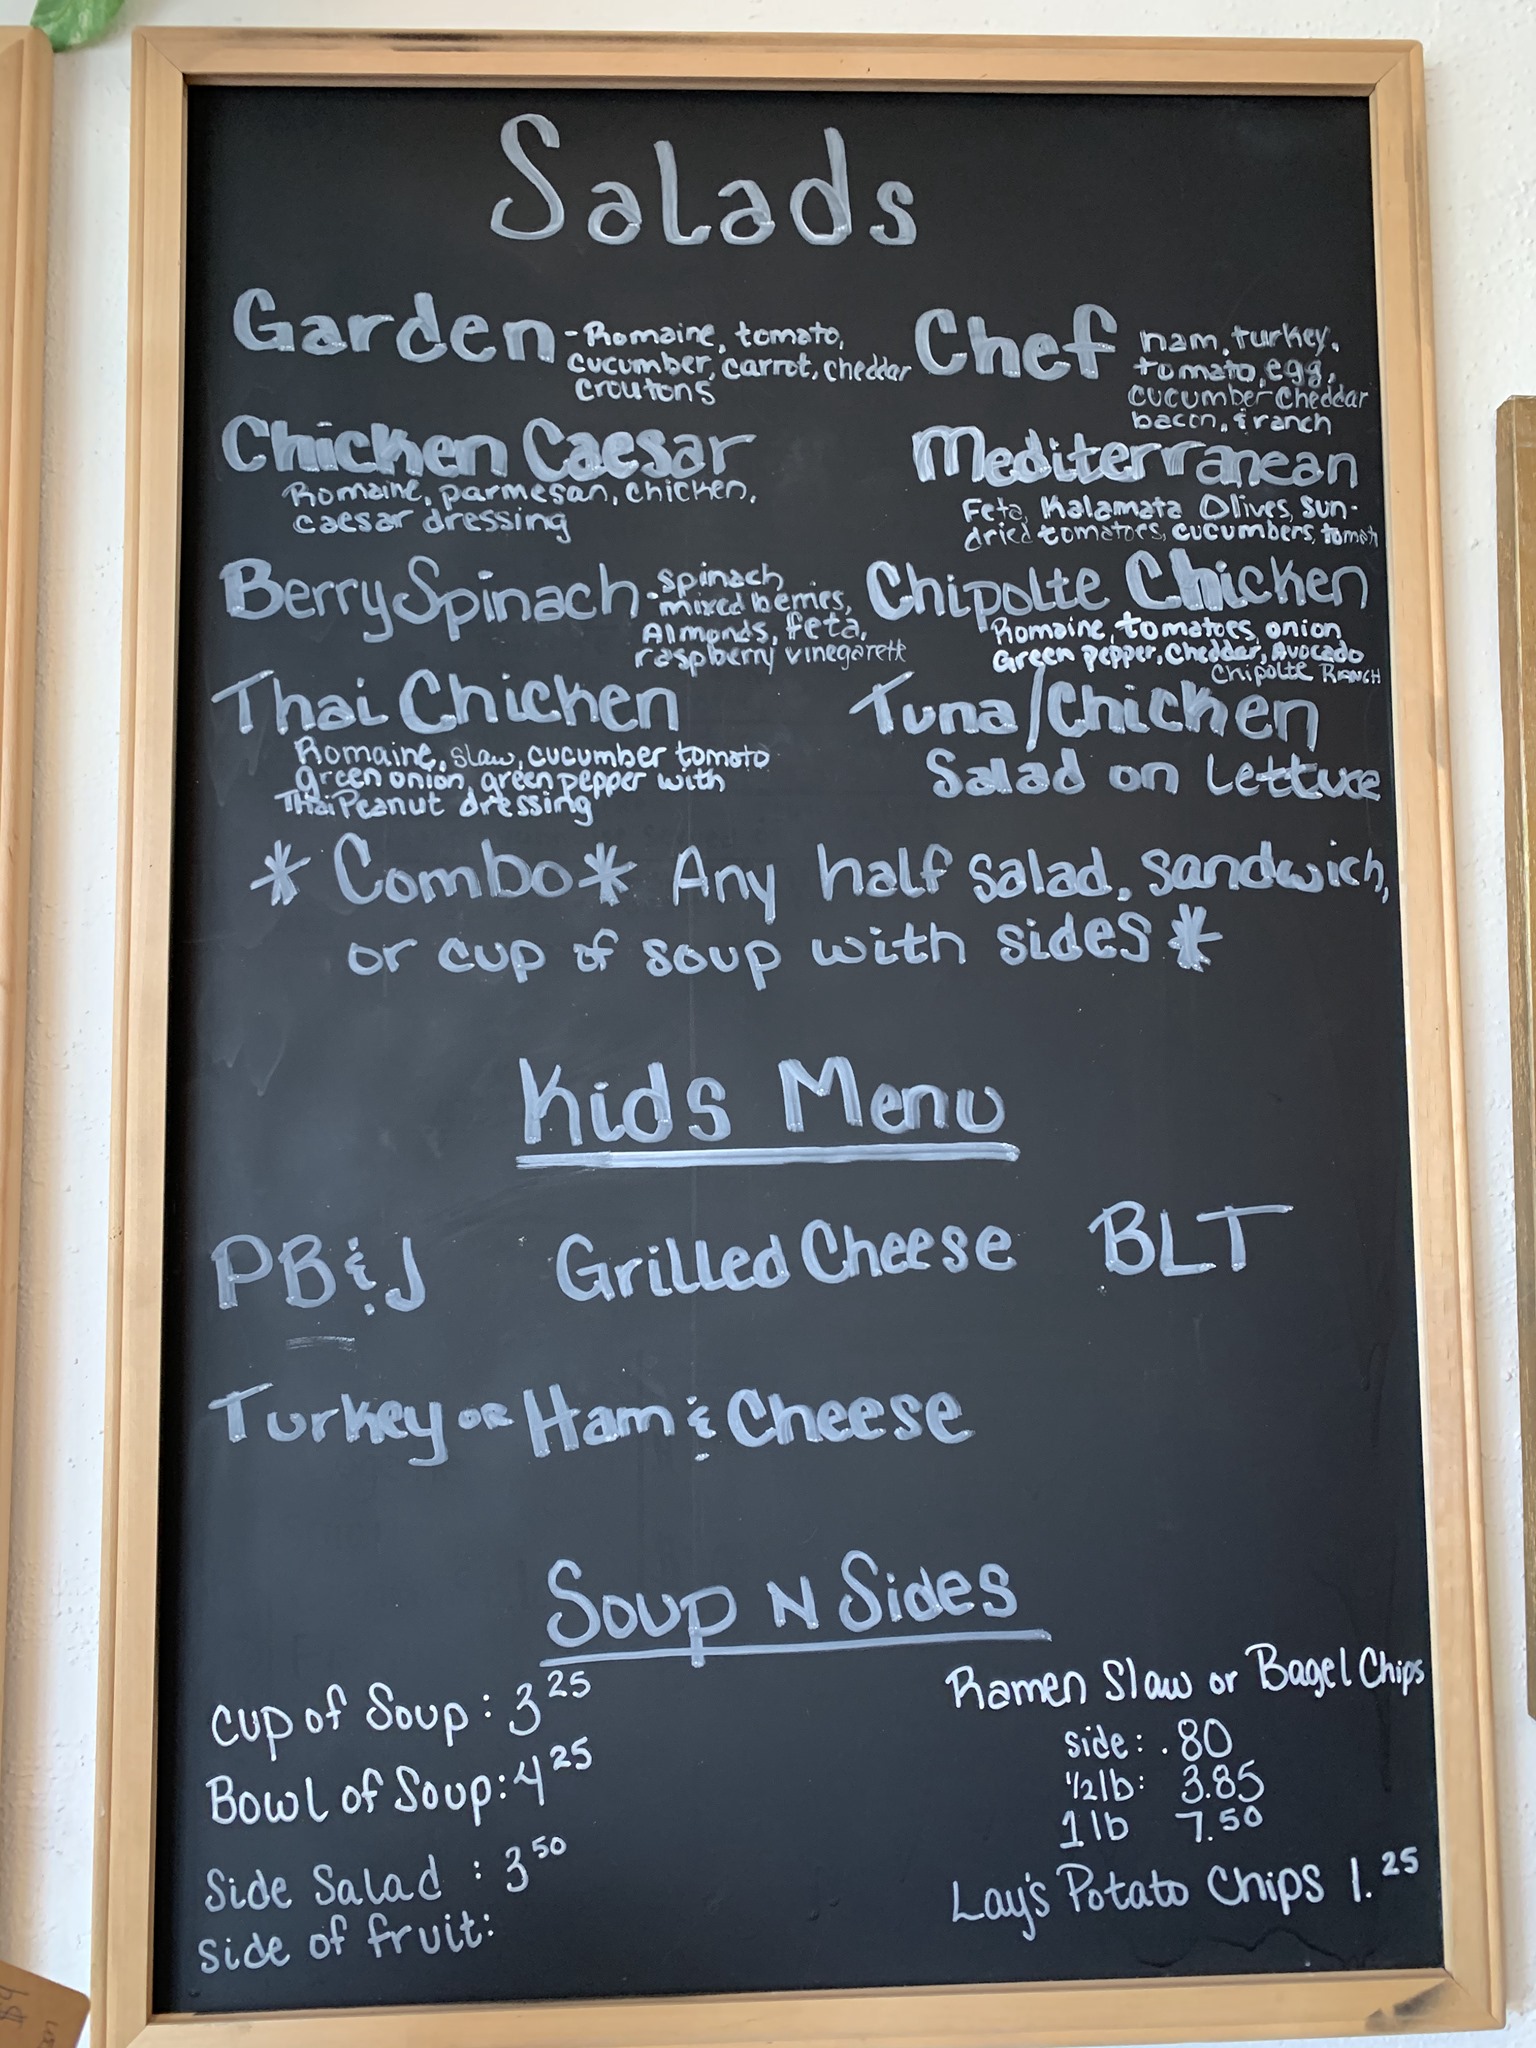 Salads
Garden - Romaine, tomato,
cucumber, carrot, cheddar
croutons
Chef ham, turkey,
tomato, egg,
cucumber cheddar
bacon, & ranch
Chicken Caesar
Romaine, parmesan, chicken,
caesar dressing
Mediterranean
Feta, Kalamata Olives, sun-
dried tomatoes, cucumbers, tomato
Berry Spinach - spinach,
mixed berries,
Almonds, feta,
raspberry vinegarette
Chipolte Chicken
Romaine, tomatoes, onion
Green pepper, Cheddar, Avocado
Chipolte RANCH
Thai Chicken
Romaine, slaw, cucumber tomato
green onion, green pepper with
Thai Peanut dressing
Tuna/Chicken
Salad on Lettuce
* Combo * Any half salad, sandwich,
or cup of soup with sides *
Kids Menu
PB&J Grilled Cheese BLT
Turkey OR Ham & Cheese
Soup N Sides
Cup of Soup: 3 25
Bowl of Soup: 4 25
Side Salad: 3 50
Side of fruit:
Ramen Slaw or Bagel Chips
side: .80
1/2 lb: 3.85
1 lb 7.50
Lay's Potato Chips 1.25